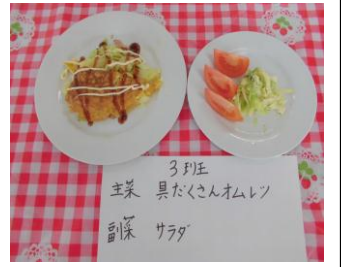 3班
主菜 具だくさんオムレツ
副菜 サラダ